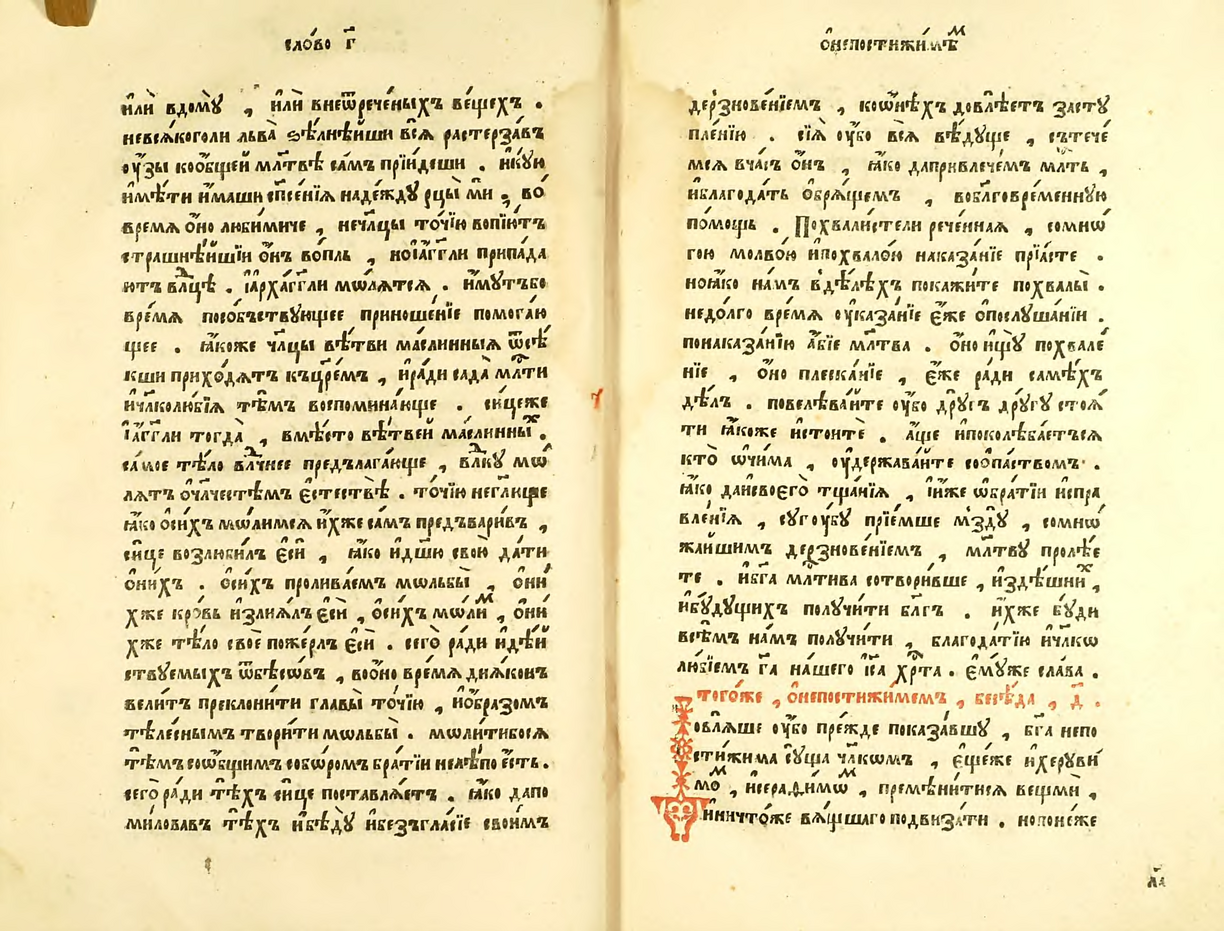 сло́во г҃
и҆лѝ вдомꙋ̀ , и҆лѝ внеѿрече́ныхъ ве́щехъ .
невсѧ́коголи льва̀ ѕѣ́лнѣйши всѧ̀ растерза́въ
оу҆́зы коо́бщей мл҃твѣ са́мъ прїи́деши . и҆кꙋ́ю
и҆мѣ́ти и҆́маши сп҃се́нїѧ наде́ждꙋ рцы́ ми , во
вре́мѧ о҆́но люби́миче , нечл҃цы то́чїю вопїю́тъ
стра́шнѣйшїи о҆́нъ во́пль , ноїа҆́гг҃ли припа́да
ютъ влⷣцѣ . і҆арха́гг҃ли мо́лѧтсѧ . и҆́мꙋтъбо
вре́мѧ пособъствꙋ́ющее приноше́нїе помогаю
щее . ꙗ҆́коже чл҃цы вѣ́тви ма́слинныѧ ѿсѣ́
кши прихо́дѧтъ къцр҃е́мъ , и҆ра́ди сада̀ млⷭ҇ти
и҆чл҃колю́бїѧ тѣ́мъ воспомина́юще . си́цеже
і҆а҆́гг҃ли тогда̀ , вмѣ́сто вѣ́твей ма́слинныⷯ .
са́мое тѣ́ло влⷣчнее предълага́юще , влⷣкꙋ мѡ́
лѧтъ о҆чл҃честѣмъ є҆стествѣ̀ . то́чїю неглю́ще
ꙗ҆́ко о҆си́хъ мо́лимсѧ и҆́хже са́мъ предъвари́въ ,
си́це возлюби́лъ є҆сѝ , ꙗ҆́ко и҆дш҃ю свою̀ да́ти
о҆ни́хъ . о҆си́хъ пролива́емъ мѡльбы̀ , о҆ни́
хже кро́вь и҆злиѧ́лъ є҆сѝ , о҆си́хъ мо́лиⷨ , о҆ни́
хже тѣ́ло своѐ поже́рлъ є҆сѝ . сего̀ ра́ди и҆дѣ́й
ствꙋемыхъ ѿбѣ́сѡвъ , воо́но вре́мѧ диѧ́конъ
вели́тъ преклони́ти главы̀ то́чїю , и҆о́бразомъ
тѣле́снымъ твори́ти мѡльбы̀ . моли́тибосѧ
тѣ́мъ соо́бщимъ собѡ́ромъ бра́тїи нелѣ́по є҆́сть .
сего̀ ра́ди тѣ́хъ си́це поставлѧ́етъ . ꙗ҆́ко дапо
ми́ловавъ тѣ́хъ и҆бѣдꙋ̀ и҆безъгла́сїе свои́мъ
ѻ҆непостижи́мѣⷨ
дерзнове́нїемъ , коѡ҆нѣ́хъ довлѣ́етъ застꙋ
пле́нїю . сїѧ̀ оу҆́бо всѧ̀ вѣ́дꙋще , сътече́
мсѧ вча́съ о҆́нъ , ꙗ҆́ко даприв‌лече́мъ млⷭ҇ть ,
и҆благода́ть о҆брѧ́щемъ , воблаговре́меннꙋю
по́мощь . Похвали́стели рече́ннаѧ , сомно́
гою молво́ю и҆похвало́ю наказа́нїе прїѧ́сте .
ноꙗ҆́ко на́мъ вдѣ́лѣхъ покажи́те похвалы̀ .
недо́лго вре́мѧ оу҆каза́нїе є҆́же о҆послꙋша́нїи .
понаказа́нїю а҆́бїе мл҃тва . о҆́но и҆щꙋ̀ похвале́
нїе , о҆́но плеска́нїе , є҆́же ра́ди самѣ́хъ
дѣ́лъ . повелѣва́йте оу҆́бо дрꙋ́гъ дрꙋ́гꙋ стоѧ́
ти ꙗ҆́коже и҆стоитѐ . а҆́ще и҆поколѣба́етъсѧ
кто̀ ѡ҆чи́ма , оу҆держава́йте соо́паствомъ .
ꙗ҆́ко даи҆своего̀ тща́нїѧ , и҆и҆́же ѡ҆бра́тїи и҆спра
вле́нїѧ , сꙋгꙋ́бꙋ прїе́мше мздꙋ̀ , сомно
жа́йшимъ дерзнове́нїемъ , мл҃твꙋ пролѣ́е
те . и҆бг҃а млⷭ҇тива сотвори́вше , и҆здѣ́шниⷯ ,
и҆бꙋ́дꙋщихъ полꙋчи́ти бл҃гъ . и҆́хже бꙋ́ди
всѣ́мъ на́мъ полꙋчи́ти , благода́тїю и҆чл҃ко
лю́бїемъ гⷭ҇а на́шего і҆с҃а хрⷭ҇та̀ . є҆мꙋ́же сла́ва .
тогѡ́же , ѻ҆непостижи́мемъ , бесѣ́да , д҃ .
Довлѧ́ше оу҆́бо пре́жде показа́вшꙋ , бг҃а непо
стижи́ма сꙋ́ща чл҃комъ , є҆ще́же и҆херꙋви́
моⷨ , и҆серафи́моⷨ , премѣни́тисѧ ве́щми ,
и҆ничто́же вѧ́щшаго подвиза́ти . нопоне́же
л҃а